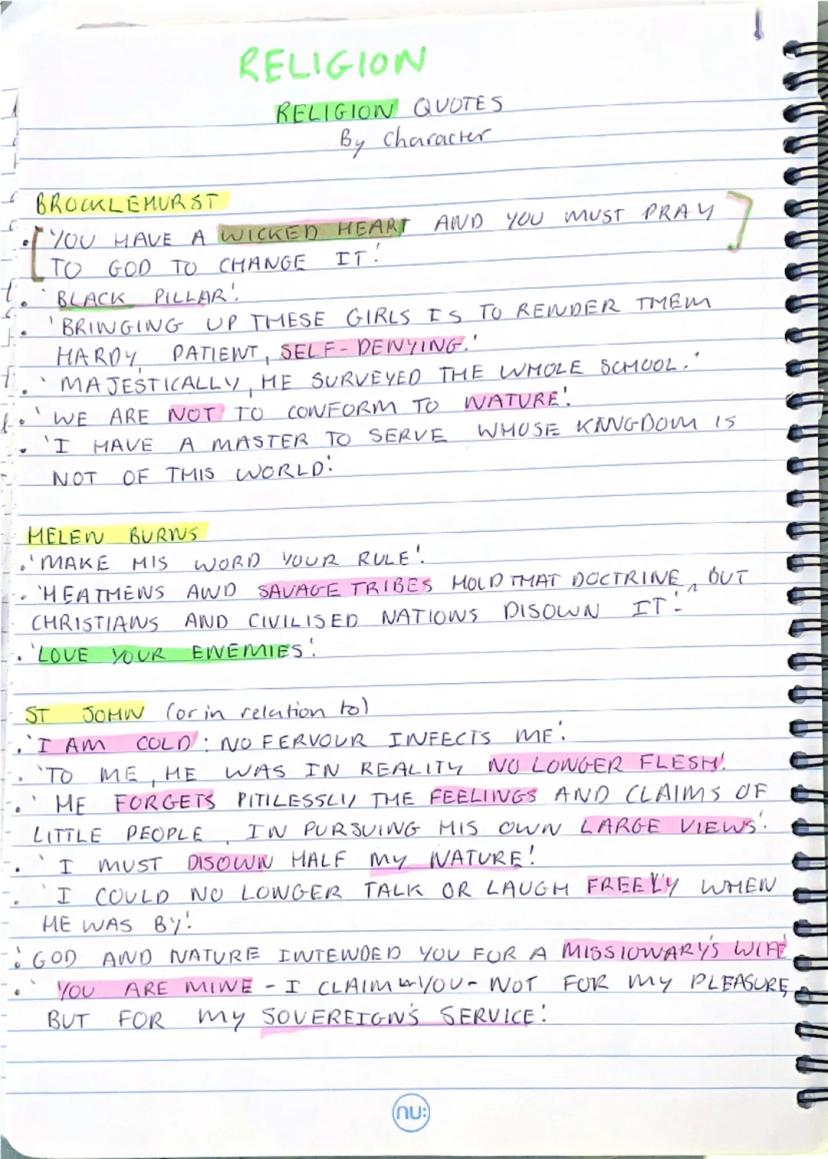 RELIGION
RELIGION QUOTES
By Character
BROCKLEHURST
• 'YOU HAVE A WICKED HEART AND YOU MUST PRAY
TO GOD TO CHANGE IT.'
• 'BLACK PILLAR'.
• 'BRINGING UP THESE GIRLS IS TO RENDER THEM
HARDY, PATIENT, SELF-DENYING.'
• 'MAJESTICALLY, HE SURVEYED THE WHOLE SCHOOL.'
• 'WE ARE NOT TO CONFORM TO NATURE'.
• 'I HAVE A MASTER TO SERVE WHOSE KINGDOM IS
NOT OF THIS WORLD.'
HELEN BURNS
• 'MAKE HIS WORD YOUR RULE'.
• 'HEATHENS AND SAVAGE TRIBES HOLD THAT DOCTRINE, BUT
CHRISTIANS AND CIVILISED NATIONS DISOWN IT.'
• 'LOVE YOUR ENEMIES'.
ST JOHN (or in relation to)
• 'I AM COLD: NO FERVOUR INFECTS ME'.
• 'TO ME, HE WAS IN REALITY NO LONGER FLESH'.
• 'HE FORGETS PITILESSLY THE FEELINGS AND CLAIMS OF
LITTLE PEOPLE, IN PURSUING HIS OWN LARGE VIEWS'.
• 'I MUST DISOWN HALF MY NATURE'.
• 'I COULD NO LONGER TALK OR LAUGH FREELY WHEN
HE WAS BY'.
• 'GOD AND NATURE INTENDED YOU FOR A MISSIONARY'S WIFE'
• 'YOU ARE MINE - I CLAIM YOU - NOT FOR MY PLEASURE,
BUT FOR MY SOVEREIGN'S SERVICE'.
nu: